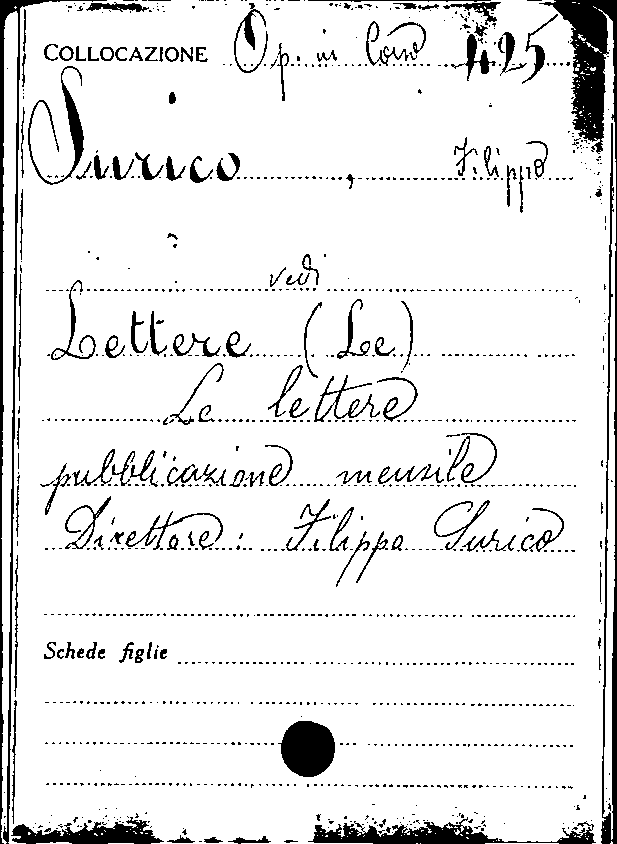 COLLOCAZIONE Op. in Corso 425
Surico, Filippo
vedi
Lettere (Le)
Le lettere
pubblicazione mensile
Direttore: Filippo Surico
Schede figlie